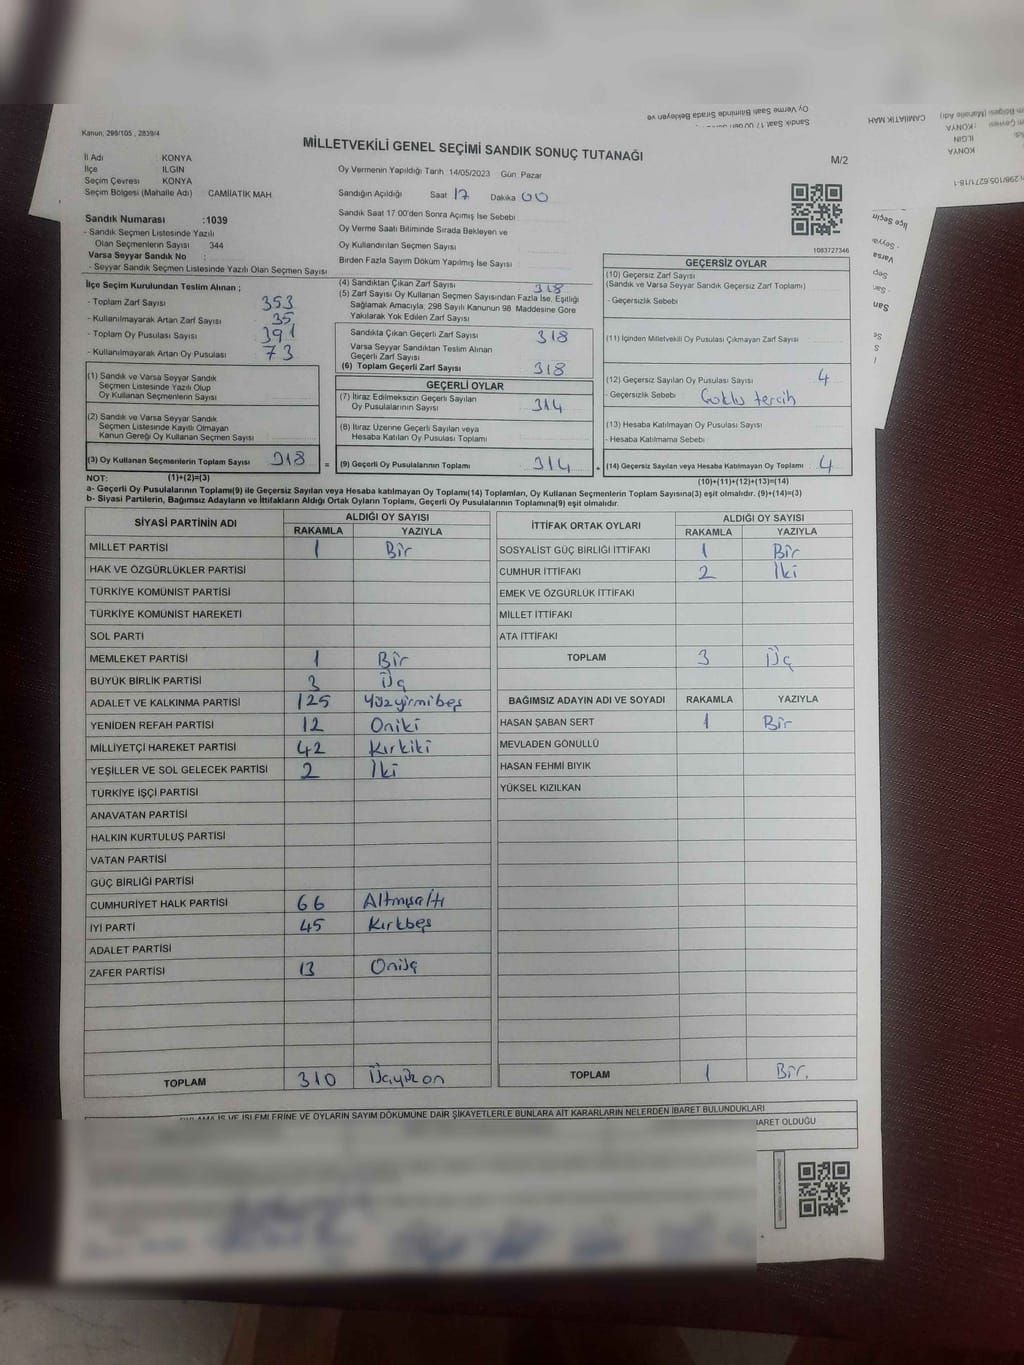 Kanun, 298/105, 2839/4
MİLLETVEKİLİ GENEL SEÇİMİ SANDIK SONUÇ TUTANAĞI
M/2
İl Adı : KONYA
İlçe : ILGIN
Seçim Çevresi : KONYA
Seçim Bölgesi (Mahalle Adı) : CAMİİATİK MAH
Oy Vermenin Yapıldığı Tarih 14/05/2023 Gün Pazar
Sandığın Açıldığı Saat 17 Dakika 00
Sandık Saat 17:00'den Sonra Açımış İse Sebebi
Oy Verme Saati Bitiminde Sırada Bekleyen ve
Oy Kullandırılan Seçmen Sayısı
Birden Fazla Sayım Döküm Yapılmış İse Sayısı
1083727346
Sandık Numarası :1039
- Sandık Seçmen Listesinde Yazılı
Olan Seçmenlerin Sayısı 344
Varsa Seyyar Sandık No :
- Seyyar Sandık Seçmen Listesinde Yazılı Olan Seçmen Sayısı
İlçe Seçim Kurulundan Teslim Alınan ;
- Toplam Zarf Sayısı 353
- Kullanılmayarak Artan Zarf Sayısı 35
- Toplam Oy Pusulası Sayısı 391
- Kullanılmayarak Artan Oy Pusulası 73
(1) Sandık ve Varsa Seyyar Sandık
Seçmen Listesinde Yazılı Olup
Oy Kullanan Seçmenlerin Sayısı
(2) Sandık ve Varsa Seyyar Sandık
Seçmen Listesinde Kayıtlı Olmayan
Kanun Gereği Oy Kullanan Seçmen Sayısı
(3) Oy Kullanan Seçmenlerin Toplam Sayısı 318
(1)+(2)=(3)
(4) Sandıktan Çıkan Zarf Sayısı 318
(5) Zarf Sayısı Oy Kullanan Seçmen Sayısından Fazla İse, Eşitliği
Sağlamak Amacıyla; 298 Sayılı Kanunun 98. Maddesine Göre
Yakılarak Yok Edilen Zarf Sayısı
Sandıkta Çıkan Geçerli Zarf Sayısı 318
Varsa Seyyar Sandıktan Teslim Alınan
Geçerli Zarf Sayısı
(6) Toplam Geçerli Zarf Sayısı 318
GEÇERLİ OYLAR
(7) İtiraz Edilmeksizin Geçerli Sayılan
Oy Pusulalarının Sayısı 314
(8) İtiraz Üzerine Geçerli Sayılan veya
Hesaba Katılan Oy Pusulası Toplamı
= (9) Geçerli Oy Pusulalarının Toplamı 314 +
GEÇERSİZ OYLAR
(10) Geçersiz Zarf Sayısı
(Sandık ve Varsa Seyyar Sandık Geçersiz Zarf Toplamı)
- Geçersizlik Sebebi
(11) İçinden Milletvekili Oy Pusulası Çıkmayan Zarf Sayısı
(12) Geçersiz Sayılan Oy Pusulası Sayısı 4
- Geçersizlik Sebebi Çoklu tercih
(13) Hesaba Katılmayan Oy Pusulası Sayısı
- Hesaba Katılmama Sebebi
(14) Geçersiz Sayılan veya Hesaba Katılmayan Oy Toplamı 4
(10)+(11)+(12)+(13)=(14)
NOT:
a- Geçerli Oy Pusulalarının Toplamı(9) ile Geçersiz Sayılan veya Hesaba katılmayan Oy Toplamı(14) Toplamları, Oy Kullanan Seçmenlerin Toplam Sayısına(3) eşit olmalıdır. (9)+(14)=(3)
b- Siyasi Partilerin, Bağımsız Adayların ve İttifakların Aldığı Ortak Oyların Toplamı, Geçerli Oy Pusulalarının Toplamına(9) eşit olmalıdır.
SİYASİ PARTİNİN ADI ALDIĞI OY SAYISI
RAKAMLA YAZIYLA
MİLLET PARTİSİ 1 Bir
HAK VE ÖZGÜRLÜKLER PARTİSİ
TÜRKİYE KOMÜNİST PARTİSİ
TÜRKİYE KOMÜNİST HAREKETİ
SOL PARTİ
MEMLEKET PARTİSİ 1 Bir
BÜYÜK BİRLİK PARTİSİ 3 Üç
ADALET VE KALKINMA PARTİSİ 125 Yüzyirmibeş
YENİDEN REFAH PARTİSİ 12 Oniki
MİLLİYETÇİ HAREKET PARTİSİ 42 Kırkiki
YEŞİLLER VE SOL GELECEK PARTİSİ 2 İki
TÜRKİYE İŞÇİ PARTİSİ
ANAVATAN PARTİSİ
HALKIN KURTULUŞ PARTİSİ
VATAN PARTİSİ
GÜÇ BİRLİĞİ PARTİSİ
CUMHURİYET HALK PARTİSİ 66 Altmışaltı
İYİ PARTİ 45 Kırkbeş
ADALET PARTİSİ
ZAFER PARTİSİ 13 Onüç
TOPLAM 310 Üçyüzon
İTTİFAK ORTAK OYLARI ALDIĞI OY SAYISI
RAKAMLA YAZIYLA
SOSYALİST GÜÇ BİRLİĞİ İTTİFAKI 1 Bir
CUMHUR İTTİFAKI 2 İki
EMEK VE ÖZGÜRLÜK İTTİFAKI
MİLLET İTTİFAKI
ATA İTTİFAKI
TOPLAM 3 Üç
BAĞIMSIZ ADAYIN ADI VE SOYADI RAKAMLA YAZIYLA
HASAN ŞABAN SERT 1 Bir
MEVLADEN GÖNÜLLÜ
HASAN FEHMİ BIYIK
YÜKSEL KIZILKAN
TOPLAM 1 Bir.
İŞ VE İŞLEMLERİNE VE OYLARIN SAYIM DÖKÜMÜNE DAİR ŞİKAYETLERLE BUNLARA AİT KARARLARIN NELERDEN İBARET BULUNDUKLARI
OLDUĞU
Oy Verme Saati Bitiminde Sırada Bekleyen ve
CAMİİATİK MAH
KONYA
ILGIN
KONYA